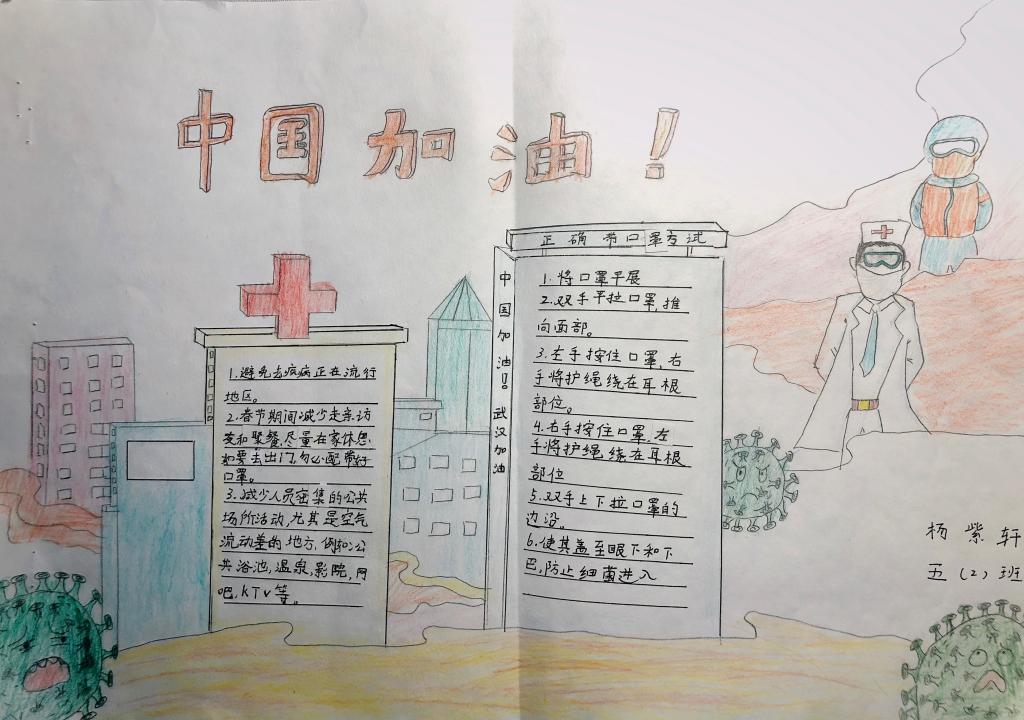 中国加油!
1.避免去疫病正在流行
地区。
2.春节期间减少走亲访
友和聚餐,尽量在家休息
如要去出门,勿必配带好
口罩。
3.减少人员密集的公共
场所活动,尤其是空气
流动差的地方,例如:公
共浴池,温泉,影院,网
吧,KTV等。
中国加油!!武汉加油
正确带口罩方试
1.将口罩平展
2.双手平拉口罩,推
向面部。
3.左手按住口罩,右
手将护绳绕在耳根
部位。
4.右手按住口罩,左
手将护绳绕在耳根
部位
5.双手上下拉口罩的
边沿。
6.使其盖至眼下和下
巴,防止细菌进入
杨紫轩
五(2)班